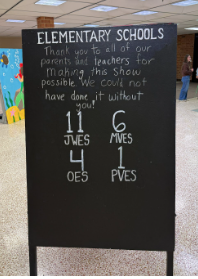 ELEMENTARY SCHOOLS
Thank you to all of our
parents and teachers for
making this show
possible. We could not
have done it without
you!
11 6
JWES MVES
4 1
OES PVES